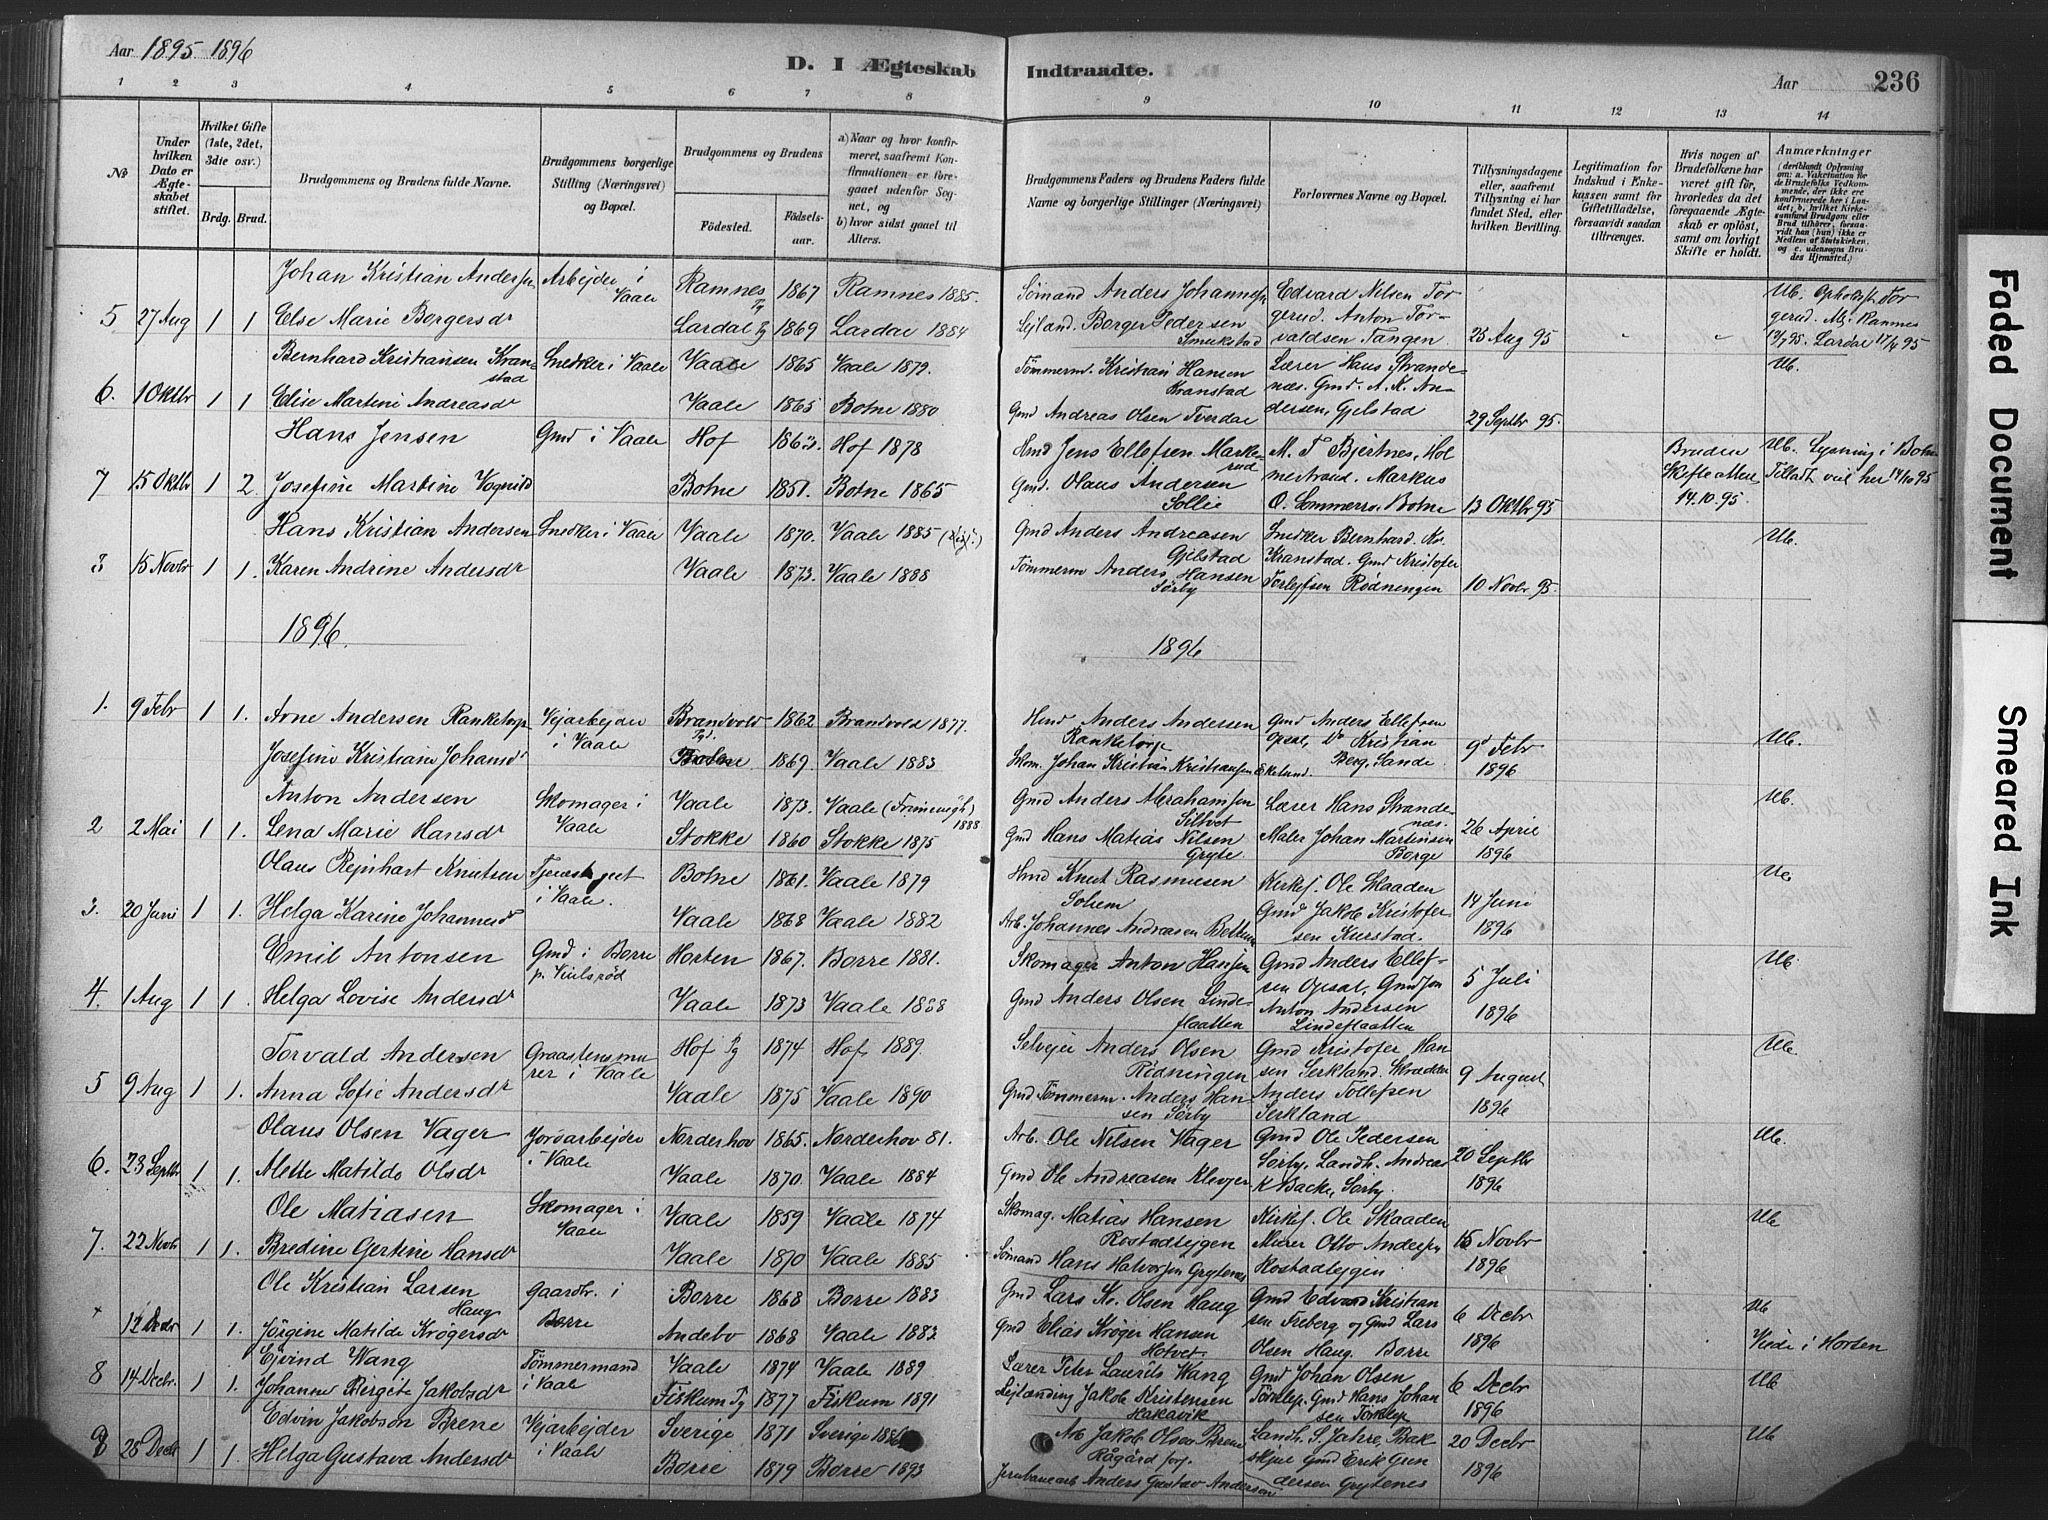 Aar 1895 1896
D. I Ægteskab Indtraadte.
Aar
236
1 2 3 4 5 6 7 8 9 10 11 12 13 14
No
Under hvilken Dato er Ægteskabet stiftet.
Hvilket Gifte (1ste, 2det, 3die osv.)
Brdg. Brud.
Brudgommens og Brudens fulde Navne.
Brudgommens borgerlige Stilling (Næringsvei) og Bopæl.
Brudgommens og Brudens
Fødested.
Fødselsaar.
a) Naar og hvor konfirmeret, saafremt Konfirmationen er foregaaet udenfor Sognet, og
b) hvor sidst gaaet til Alters.
Brudgommens Faders og Brudens Faders fulde Navne og borgerlige Stillinger (Næringsvei)
Forlovernes Navne og Bopæl.
Tillysningsdagene eller, saafremt Tillysning ei har fundet Sted, efter hvilken Bevilling.
Legitimation for Indskud i Enkekassen samt for Giftetilladelse, forsaavidt saadan tiltrænges.
Hvis nogen af Brudefolkene har været gift før, hvorledes da det foregaaende Ægteskab er opløst, samt om lovligt Skifte er holdt.
Anmærkninger
Johan Kristian Andersen Arbejder i Vaale Ramnes Pg 1867 Ramnes 1885. Sømand Anders Johannesen Edvard Nilsen Torgerud. Anton Torvaldsen Tangen
5 27 Aug 1 1 Else Marie Borgersdr Lardal Pg 1869 Lardal 1884 Lejland. Borger Pedersen 25 Aug 95
Bernhard Kristiansen Kranstad Snedker i Vaale Vaale 1865 Vaale 1879. Tømmerm. Kristian Hansen Kranstad Lærer Hans Strandenæs. Gmd. A. K. Andersen, Gjelstad Ub.
6. 1 Oktbr 1 1 Elise Martine Andreasdr Vaale 1865 Botne 1880 Gmd Andreas Olsen Tverdal 29 Septbr 95.
Hans Jensen Gmd i Vaale Hof 1863. Hof 1878 Hmd Jens Ellefsen Markerud M. T Bjertnes, Holmestrand. Markus O. Sommerro, Botne Ub. Lysning i Botne
7 15 Oktbr 1 2. Josefine Martine Vognild Botne 1851. Botne 1865 Gmd. Olaus Andersen Sollie 13 Oktbr 95 Bruden Skifteatten 14.10.95.
Hans Kristian Andersen Snedker i Vaale Vaale 1870. Vaale 1885 Gmd Anders Andreasen Gjelstad Snedker Bernhard. Kr. Kranstad. Gmd Kristofer Torlefsen Rødningen Ub.
15 Novbr 1 1. Karen Andrine Andersdr Vaale 1873. Vaale 1888 Tømmerm Anders Hansen Sørby 10 Novbr 95.
1896. 1896
1. 9 Febr 1 1. Arne Andersen Ranketorp Vejarbejder i Vaale Brandvold 1862 Brandvold 1877. Hmd Anders Andersen Ranketorp Gmd Anders Ellefsen Opsal, Do Kristian Berg, Sande Ub.
Josefine Kristiane Johansdr Botne 1869. Vaale 1883 Skom. Johan Kristian Kristiansen Ekelund. 9d Febr 1896
Anton Andersen Skomager i Vaale Vaale 1873. Vaale 1888 Gmd Anders Abrahamsen Lærer Hans Strandenæs. Ub.
2 2 Mai 1 1. Lena Marie Hansdr Stokke 1860 Stokke 1875 Gmd Hans Matias Nilsen Gryte Maler Johan Martinsen Borge 26 April 1896
Olaus Rejnhart Knutsen i Vaale. Botne 1861. Vaale 1879 Hmd Knut Rasmusen Solum Kirkes. Ole Skaaden Ub
3. 20 Juni 1 1. Helga Karine Johannesdr Vaale 1868 Vaale 1882 Arb. Johannes Andreasen Bettum Gmd Jakob Kristofersen Kurstad. 14 Juni 1896
Emil Antonsen Gmd i Borre Horten 1867. Borre 1881. Skomager Anton Hansen Gmd Anders Ellefsen Opsal, Ub.
4. 1 Aug 1 1. Helga Lovise Andersdr Vaale 1873 Vaale 1888 Gmd Anders Olsen Lindeflaatten Anton Andersen Lindeflaatten 5 Juli 1896
Torvald Andersen Graastensmurer i Vaale Hof Pg 1874 Hof 1889 Selvejer Anders Olsen Rødningen Gmd Kristofer Hansen Serkland. Skrædder Anders Tollefsen Serkland Ub.
5 9 Aug 1 1. Anna Sofie Andersdr Vaale 1875 Vaale 1890 Gmd Tømmerm. Anders Hansen Sørby 9 August 1896
Olaus Olsen Vager Jordarbejder i Vaale Norderhov 1865. Norderhov 81. Arb. Ole Nilsen Vager Gmd Ole Pedersen Sørby, Landh. Andreas K Backe, Sørby. Ub.
6. 23 Septbr 1 1. Alette Matilde Olsdr Vaale 1870. Vaale 1884 Gmd Ole Andreasen Klevjer 20 Septbr 1896
Ole Matiasen Skomager i Vaale Vaale 1859 Vaale 1874 Skomag. Matias Hansen Rostadejgen Kirkes. Ole Skaaden Ub
7. 22 Novbr 1 1. Bredine Gertine Hansdr Vaale 1870 Vaale 1885 Sømand Hans Halvorsen Grytenes Murer Otto Andersen 15 Novbr 1896
Ole Kristian Larsen Haug Gaardbr. i Borre Borre 1868 Borre 1883 Gmd Lars Kr. Olsen Haug Gmd Edvard Kristiansen Freberg og Gmd Lars Olsen Haug. Borre Ub
12 Decbr 1 1. Jørgine Matilde Krøgersdr Andebo 1868 Vaale 1882 Gmd Elias Krøger Hansen Hotvet 6 Decbr 1896 Viede i Horten
Ejvind Wang Tømmermand i Vaale Vaale 1874 Vaale 1889. Lærer Peter Laurits Wang Gmd Johan Olsen Ub
8 14 Decbr. 1 1. Johanne Birgite Jakobsdr Fiskum Pg 1877 Fiskum 1891 Lejlænding Jakob Kristensen Hakavik Gmd Hans Johansen 6 Decbr 1896
Edvin Jakobson Brene Vejarbejder i Vaale Sverige 1871 Sverige Arb Jakob Olson Brene Landh. S. Jahre, Bakskjue Gmd Erik Gundersen Grytenes Ub
9 28 Decbr 1 1. Helga Gustava Andersdr Borre 1879 Borre 1893 Jernbanearb Anders Gustav Anderson 20 Decbr 1896
Faded Document
Smeared Ink